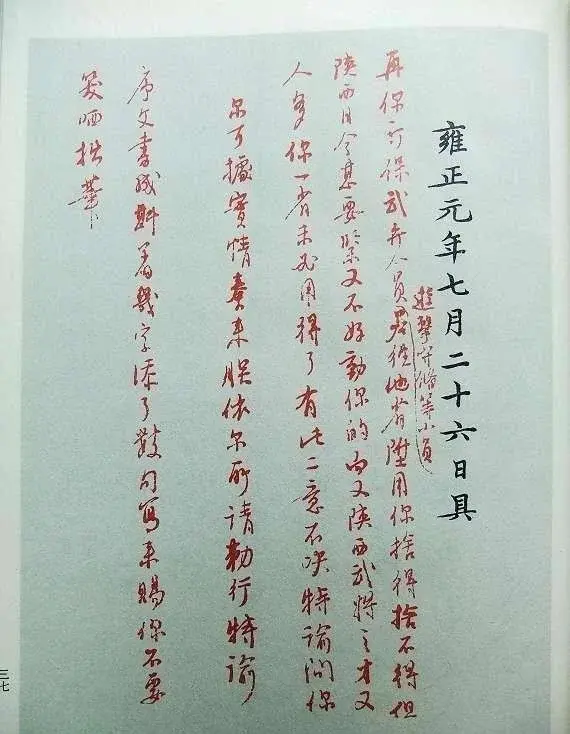 雍正元年七月二十六日具
遊擊守備等小員
再你所保武弁人員若從他省陞用你捨得捨不得但
陝西目今甚要緊又不好動你的而又陝西武將之才又
人多你一省未必用得了有此二意不決特諭問你
尔可據實情奏来朕依尔所請勅行特諭
序文書成斟着幾字添了數句寫来賜你不要
笑哂拙筆
三七